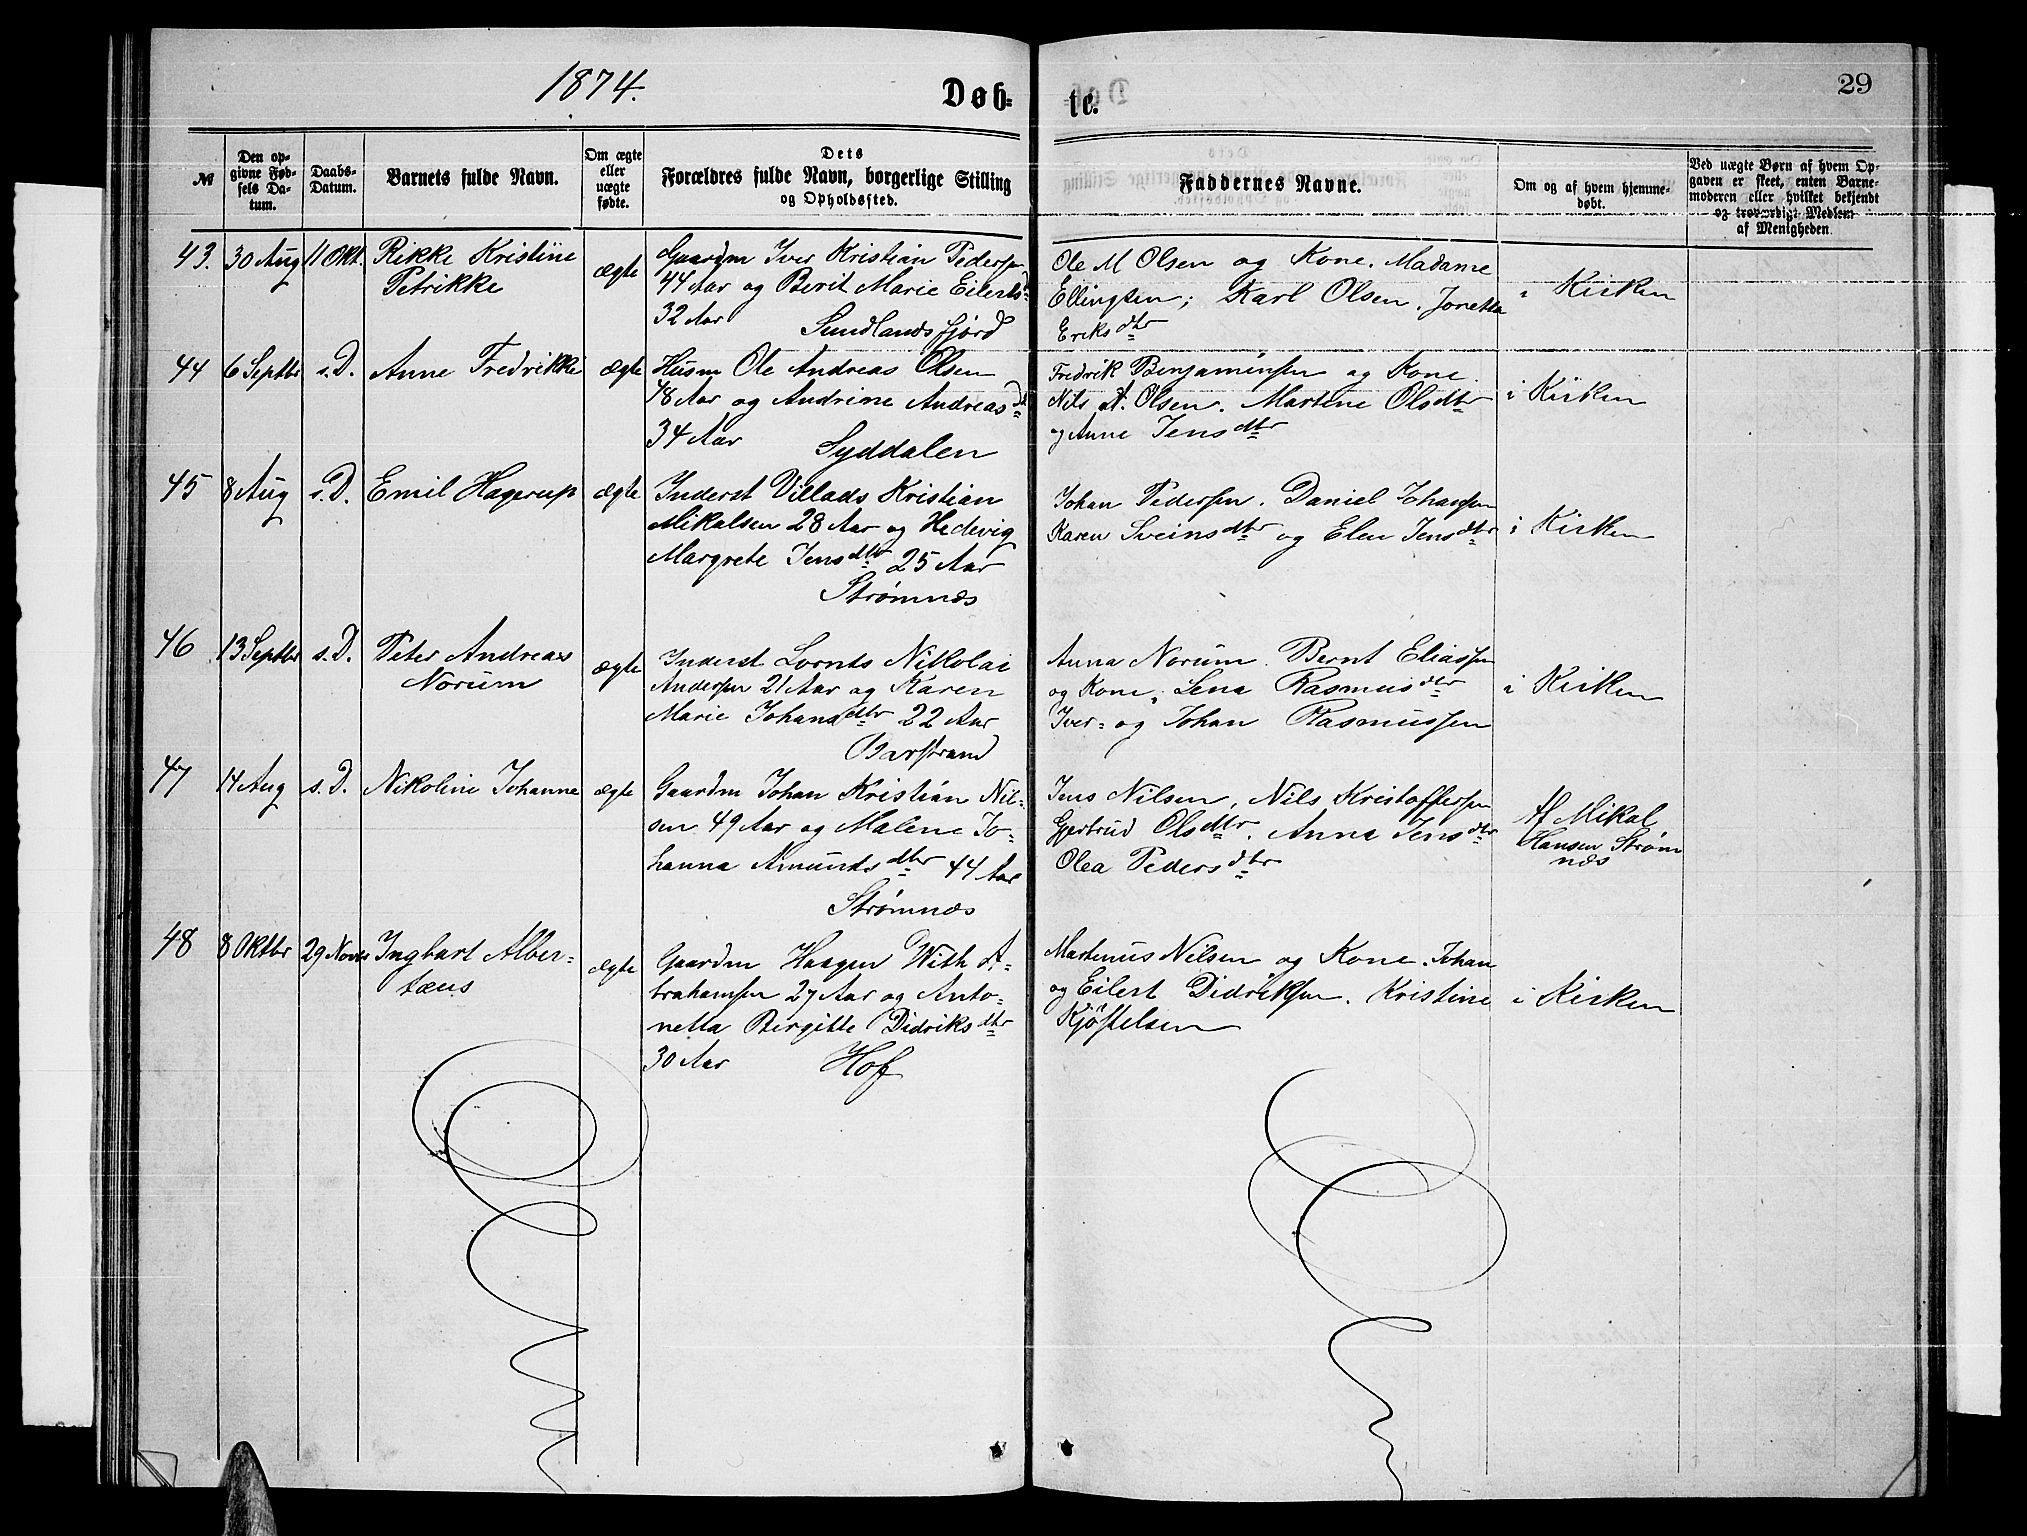 1874.
Døb-
te.
29
№
Den op-
givne Fød-
sels Da-
tum.
Daabs-
Datum.
Barnets fulde Navn.
Om ægte
eller
uægte
fødte.
Dets
Forældres fulde Navn, borgerlige Stilling
og Opholdssted.
Faddernes Navne.
Om og af hvem hjemme-
døbt.
Ved uægte Børn af hvem Op-
gaven er skeet, enten Barne-
moderen eller hvilket bekjendt
og troværdigt Medlem
af Menigheden.
43.
30 Aug
11 Okt.
Rikke Kristine
Petrikke
ægte
Gaardm Iver Kristian Pedersen
44 Aar og Berit Marie Eilertsd
32 Aar Sundlandsfjord
Ole M Olsen og Kone. Madame
Ellingsen; Karl Olsen. Jonetta
Eriksdtr
i Kirken
44
6 Septbr
s. D.
Anne Fredrikke
ægte
Husm Ole Andreas Olsen
48 Aar og Andrine Andreasdt
34 Aar Syddalen
Fredrik Benjaminsen og Kone.
Nils A. Olsen. Martine Olsdtr
og Anne Jensdtr
i Kirken
45
8 Aug
s. D.
Emil Hagerup
ægte
Inderst Villads Kristian
Mikalsen 28 Aar og Hedevig
Margrete Jensdtr 25 Aar
Strømnæs
Johan Pedersen. Daniel Johansen
Karen Sveinsdtr og Elen Jensdtr
i Kirken
46
13 Septbr
s. D.
Peter Andreas
Norum
ægte
Inderst Lornts Nikolai
Andersen 21 Aar og Karen
Marie Johansdtr 22 Aar
Barstrand
Anna Norum. Bernt Eliassen
og Kone, Lena Rasmusdtr
Iver- og Johan Rasmussen
i Kirken
47
14 Aug
s. D.
Nikoline Johanne
ægte
Gaardm Johan Kristian Nil-
sen 49 Aar og Malene Jo-
hanna Amundsdtr 44 Aar
Strømnæs
Jens Nilsen, Nils Kristoffersen
Gjertrud Olsdtr. Anna Jensdtr
Olea Pedersdtr
Af Mikal
Hansen Strøm
næs
48
8 Oktbr
29 Novbr
Ingbart Alber-
tæus
ægte
Gaardm Haagen With A-
brahamsen 27 Aar og Anto-
netta Bergitte Didriksdtr
30 Aar Hof
Martinus Nilsen og Kone. Johan
og Eilert Didriksen. Kristine
Kjöstelsen
i Kirken